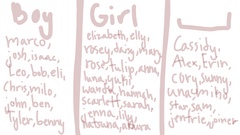 Boy
marco,
josh, isaac,
Leo, bob, eli,
Chris, milo,
john, ben,
tyler, benny
Girl
elizabeth, elly,
rosey, daisy, mary
rose, tulip, anna,
luna, yuki,
wanda, hannah,
scarlett, sarah,
jenna, lily,
natsuna, sakura
Cassidy,
Alex, Erin,
cory, sunny,
star, sam,